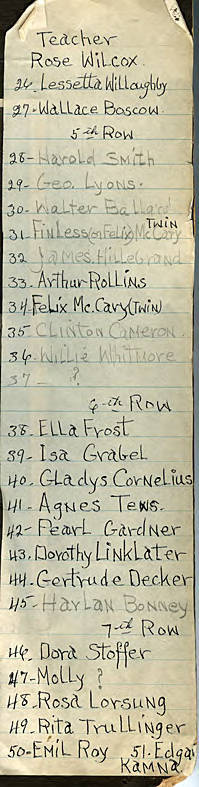 Teacher
Rose Wilcox.
26. Lessetta Willoughby
27-Wallace Boscow
5th Row
28-Harold Smith
29-Geo. Lyons.
30-Walter Ballard
31-Finless(or Felix)McCary TWIN
32 James Hillebrand
33-Arthur Rollins
34-Felix Mc.Cary(TWIN)
35 Clinton Cameron.
36-Willie Whitmore
37- ?
6-th Row
38-Ella Frost
39-Isa Grabel
40-Gladys Cornelius
41-Agnes Tews.
42-Pearl Gardner
43-Dorothy Linklater
44-Gertrude Decker
45-Harlan Bonney
7-th Row
46. Dora Stoffer
47-Molly ?
48-Rosa Lorsung
49-Rita Trullinger
50-Emil Roy 51-Edgar
Kamna